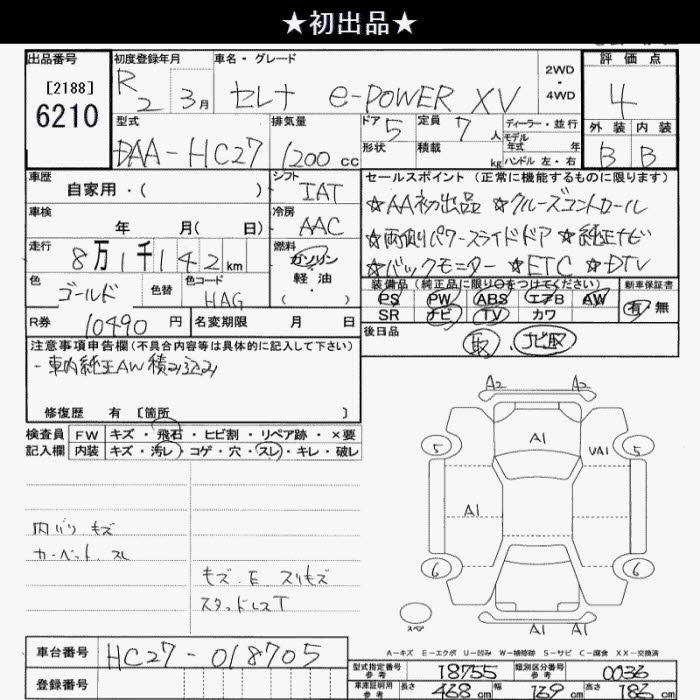 ★初出品★
出品番号
[2188]
6210
初度登録年月
R 2 3月
車名・グレード
セレナ e-POWER XV
2WD
・
4WD
評価点
4
外装 内装
B B
型式
DAA-HC27
排気量
1200 cc
ドア 5
形状
定員 7 人
積載 kg
ディーラー・並行
モデル
年式 年
ハンドル 左・右
車歴
自家用・( )
シフト
IAT
車検
年 月( 日)
冷房
AAC
走行
8万1千142km
燃料
ガソリン
軽油
( )
色
ゴールド
色替
色コード
HAG
R券
10490 円
名変期限 月 日
セールスポイント (正常に機能するものに限ります)
☆AA初出品 ☆クルーズコントロール
☆両側パワースライドドア ☆純正ナビ
☆バックモニター ☆ETC ☆DTV
装備品(純正品に限り○をつけてください)
PS PW ABS エアB AW
SR ナビ TV カワ
新車保証書
有 無
後日品
取 . ナビ取
注意事項申告欄(不具合内容等は具体的に記入して下さい)
・車内純正AW積み込み
修復歴 有 [箇所 ]
検査員
記入欄
FW キズ・飛石・ヒビ割・リペア跡・×要
内装 キズ・汚レ・コゲ・穴・スレ・キレ・破レ
内バリ キズ
カーペット スレ
キズ . E . スリキズ
スタッドレスT
A2 A2
A1
UA1
5 5
A1
6 6
スペア
A1 A1
A-キズ E-エクボ U-凹み W-補修跡 S-サビ C-腐食 XX-交換済
車台番号
HC27-018705
登録番号
型式指定番号
参考
18755
類別区分番号
参考
0036
車庫証明用
参考
長さ 468 cm 幅 169 cm 高さ 186 cm